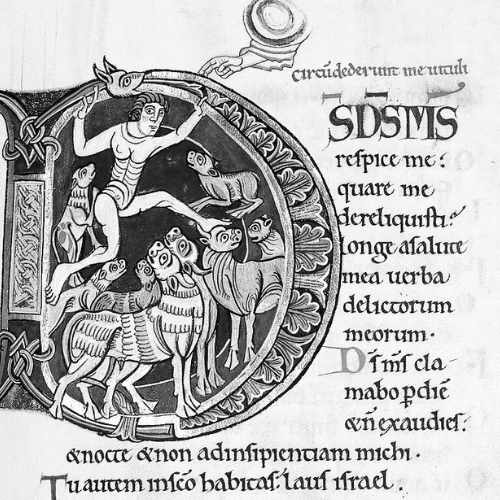 Circūdederunt me uituli
SD̄SM̄S
respice me:
quare me
dereliquisti?
longe asalute
mea uerba
delictorum
meorum.
D̄s m̄s cla-
mabo p̄ diē
&n̄ exaudies:
&nocte &non adinsipientiam michi.
Tu autem insc̄o habitas: laus israel.